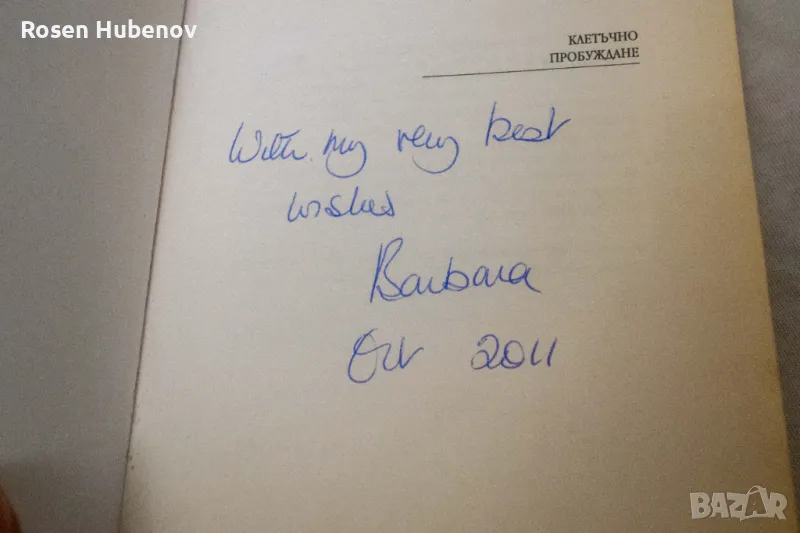 Rosen Hubenov
КЛЕТЪЧНО
ПРОБУЖДАНЕ
With my very best
wishes
Barbara
Oct 2011
BAZAR